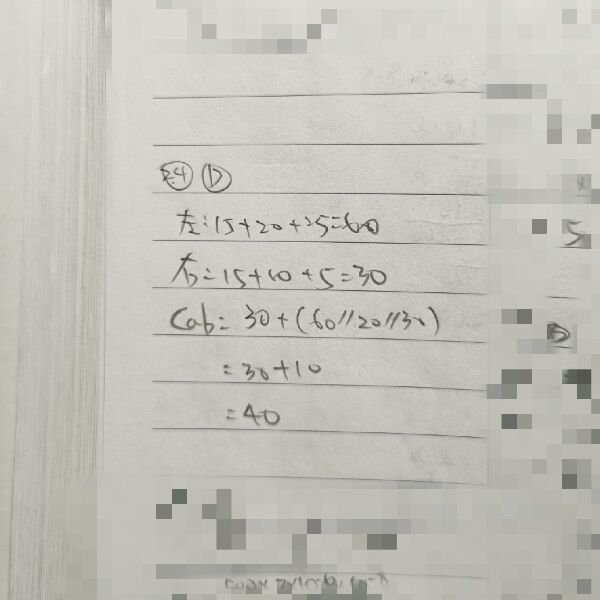 24 D
左:15+20+25=60
右=15+10+5=30
Cab= 30+(60//20//30)
=30+10
=40
5